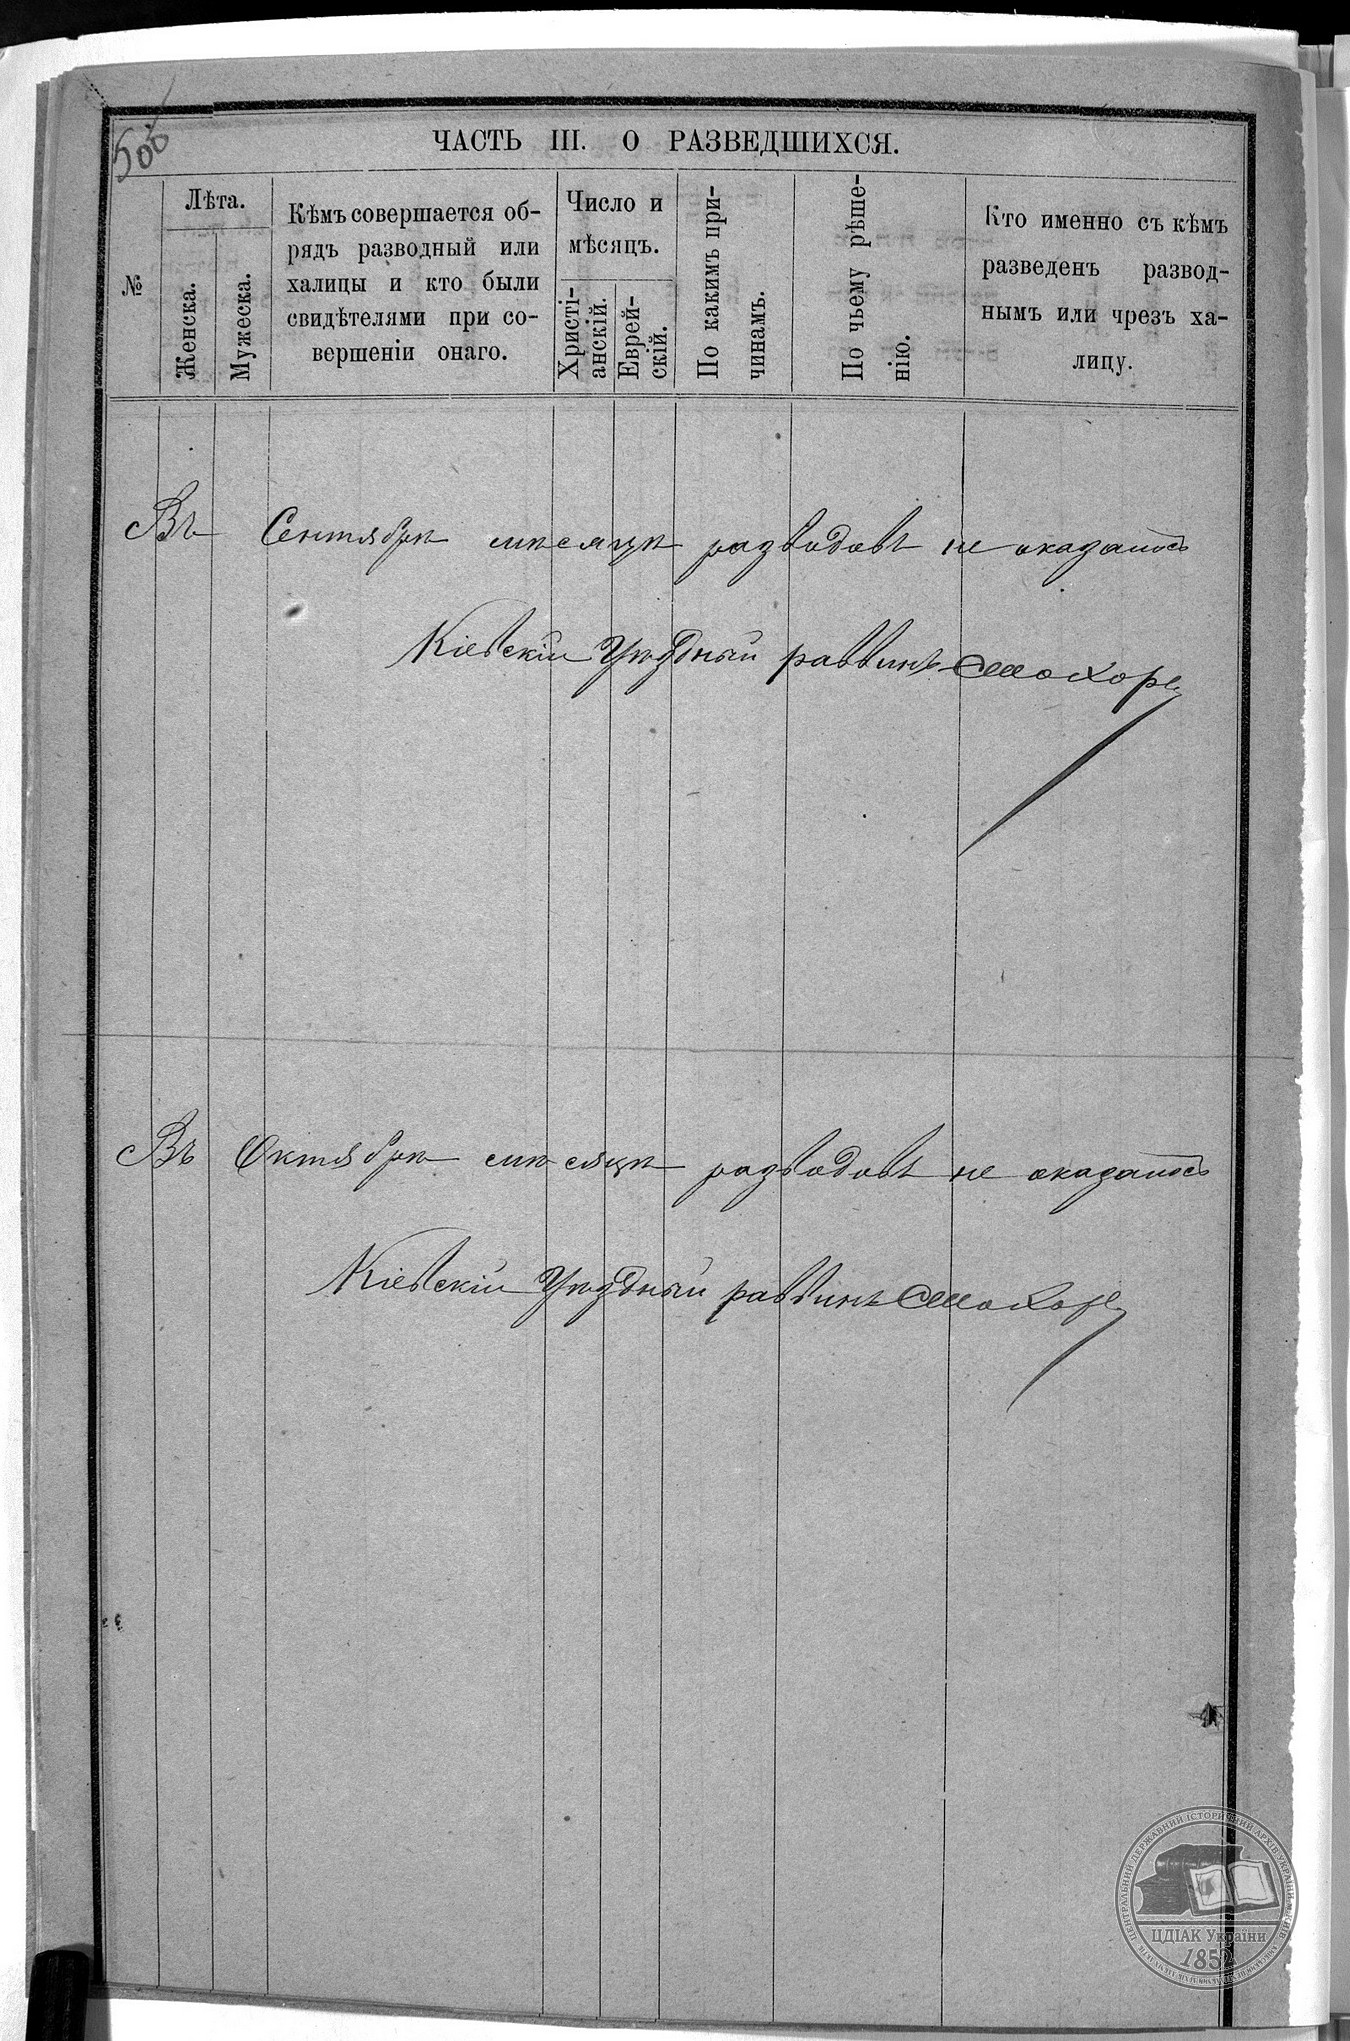 506
ЧАСТЬ III. О РАЗВЕДШИХСЯ.
№
Лѣта.
Женска.
Мужеска.
Кѣмъ совершается об-
рядъ разводный или
халицы и кто были
свидѣтелями при со-
вершеніи онаго.
Число и
мѣсяцъ.
Христі-
анскій.
Еврей-
скій.
По какимъ при-
чинамъ.
По чьему рѣше-
нію.
Кто именно съ кѣмъ
разведенъ развод-
нымъ или чрезъ ха-
лицу.
Въ Сентябрѣ мѣсяцѣ разводовъ не оказалось
Кіевскій Уѣздный раввинъ
Въ Октябрѣ мѣсяцѣ разводовъ не оказалось
Кіевскій Уѣздный раввинъ
ЦЕНТРАЛЬНИЙ ДЕРЖАВНИЙ ІСТОРИЧНИЙ АРХІВ УКРАЇНИ
ЦДІАК України
1852